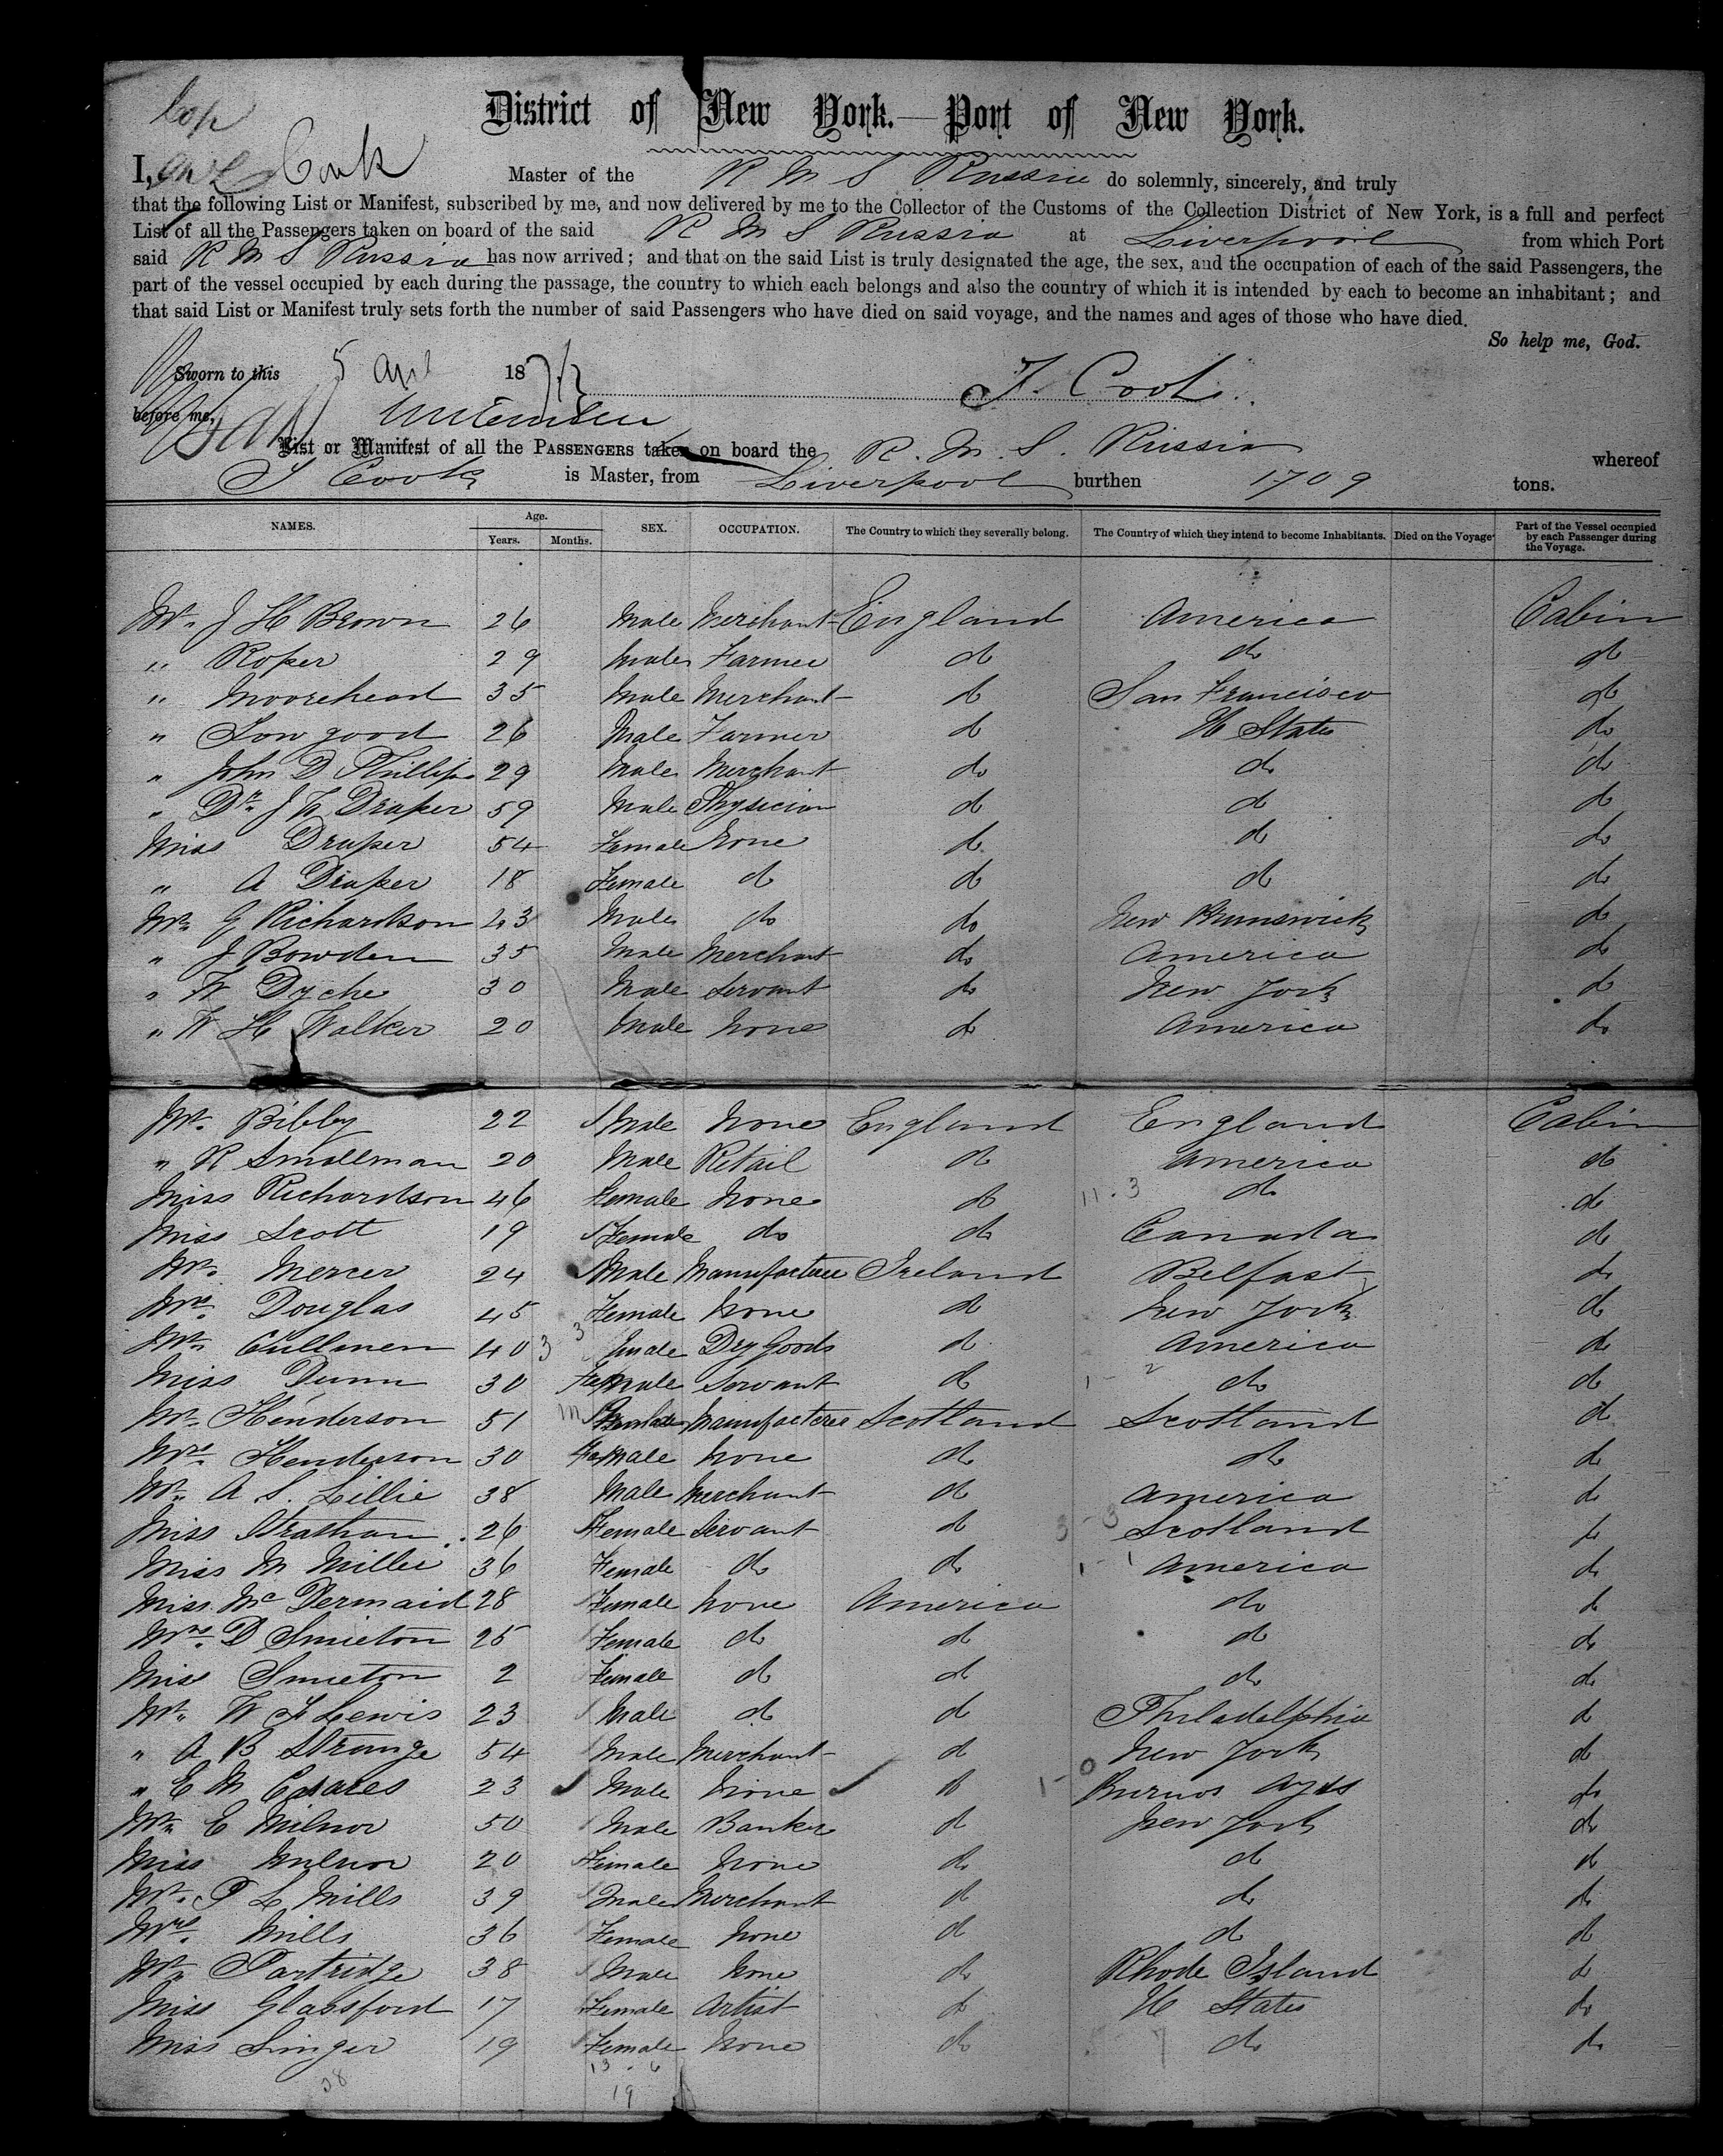 Cop
District of New York.—Port of New York.
I, Cook Master of the R M S Russia do solemnly, sincerely, and truly
that the following List or Manifest, subscribed by me, and now delivered by me to the Collector of the Customs of the Collection District of New York, is a full and perfect
List of all the Passengers taken on board of the said R M S Russia at Liverpool from which Port
said R M S Russia has now arrived; and that on the said List is truly designated the age, the sex, and the occupation of each of the said Passengers, the
part of the vessel occupied by each during the passage, the country to which each belongs and also the country of which it is intended by each to become an inhabitant; and
that said List or Manifest truly sets forth the number of said Passengers who have died on said voyage, and the names and ages of those who have died.
So help me, God.
Sworn to this 5 April 187 T. Cook
before me,
List or Manifest of all the PASSENGERS taken on board the R. M. S. Russia whereof
T Cook is Master, from Liverpool burthen 1709 tons.
NAMES. Age. Years. Months. SEX. OCCUPATION. The Country to which they severally belong. The Country of which they intend to become Inhabitants. Died on the Voyage Part of the Vessel occupied by each Passenger during the Voyage.
Mr. J H Brown 26 Male Merchant England America Cabin
" Roper 29 Male Farmer do do do
" Moorehead 35 Male Merchant do San Francisco do
" Lowgood 26 Male Farmer do U States do
" John D Phillips 29 Male Merchant do do do
" Dr. J W Draper 59 Male Physician do do do
Miss Draper 54 Female None do do do
" A Draper 18 Female do do do do
Mr G Richardson 43 Male do do New Brunswick do
" J Bowden 35 Male Merchant do America do
" W Dyche 30 Male Servant do New York do
" W H Walker 20 Male None do America do
Mr. Bibby 22 Male None England England Cabin
" R Smallman 20 Male Retail do America do
Miss Richardson 46 Female None do 11.3 do do
Miss Scott 19 Female do do Canada do
Mr. Mercer 24 Male Manufacturer Ireland Belfast do
Mrs. Douglas 45 Female None do New York do
Mr. Cullinen 40 3 3 Male Dry Goods do America do
Miss Dunn 30 Female Servant do 1 - 2 do do
Mr. Henderson 51 M Manufacturer Scotland Scotland do
Mrs. Henderson 30 Female None do do do
Mr. A S. Lillie 38 Male Merchant do America do
Miss Strathan 26 Female Servant do 3 - 3 Scotland do
Miss M Miller 36 Female do do 1 - 1 America do
Miss McDermaid 28 Female None America do do
Mrs. D Smieton 25 Female do do do do
Miss Smieton 2 Female do do do do
Mr. W F Lewis 23 Male do do Philadelphia do
" A B Strange 54 Male Merchant do New York do
" E M Casares 23 Male None do 1 - 0 Buenos Ayres do
Mr. E Milnor 50 Male Banker do New York do
Miss Milnor 20 Female None do do do
Mr. P L Mills 39 Male Merchant do do do
Mrs. Mills 36 Female None do do do
Mr. Partridge 38 Male None do Rhode Island do
Miss Glassford 17 Female Artist do U States do
Miss Singer 19 Female None do do do
38 13.6
19